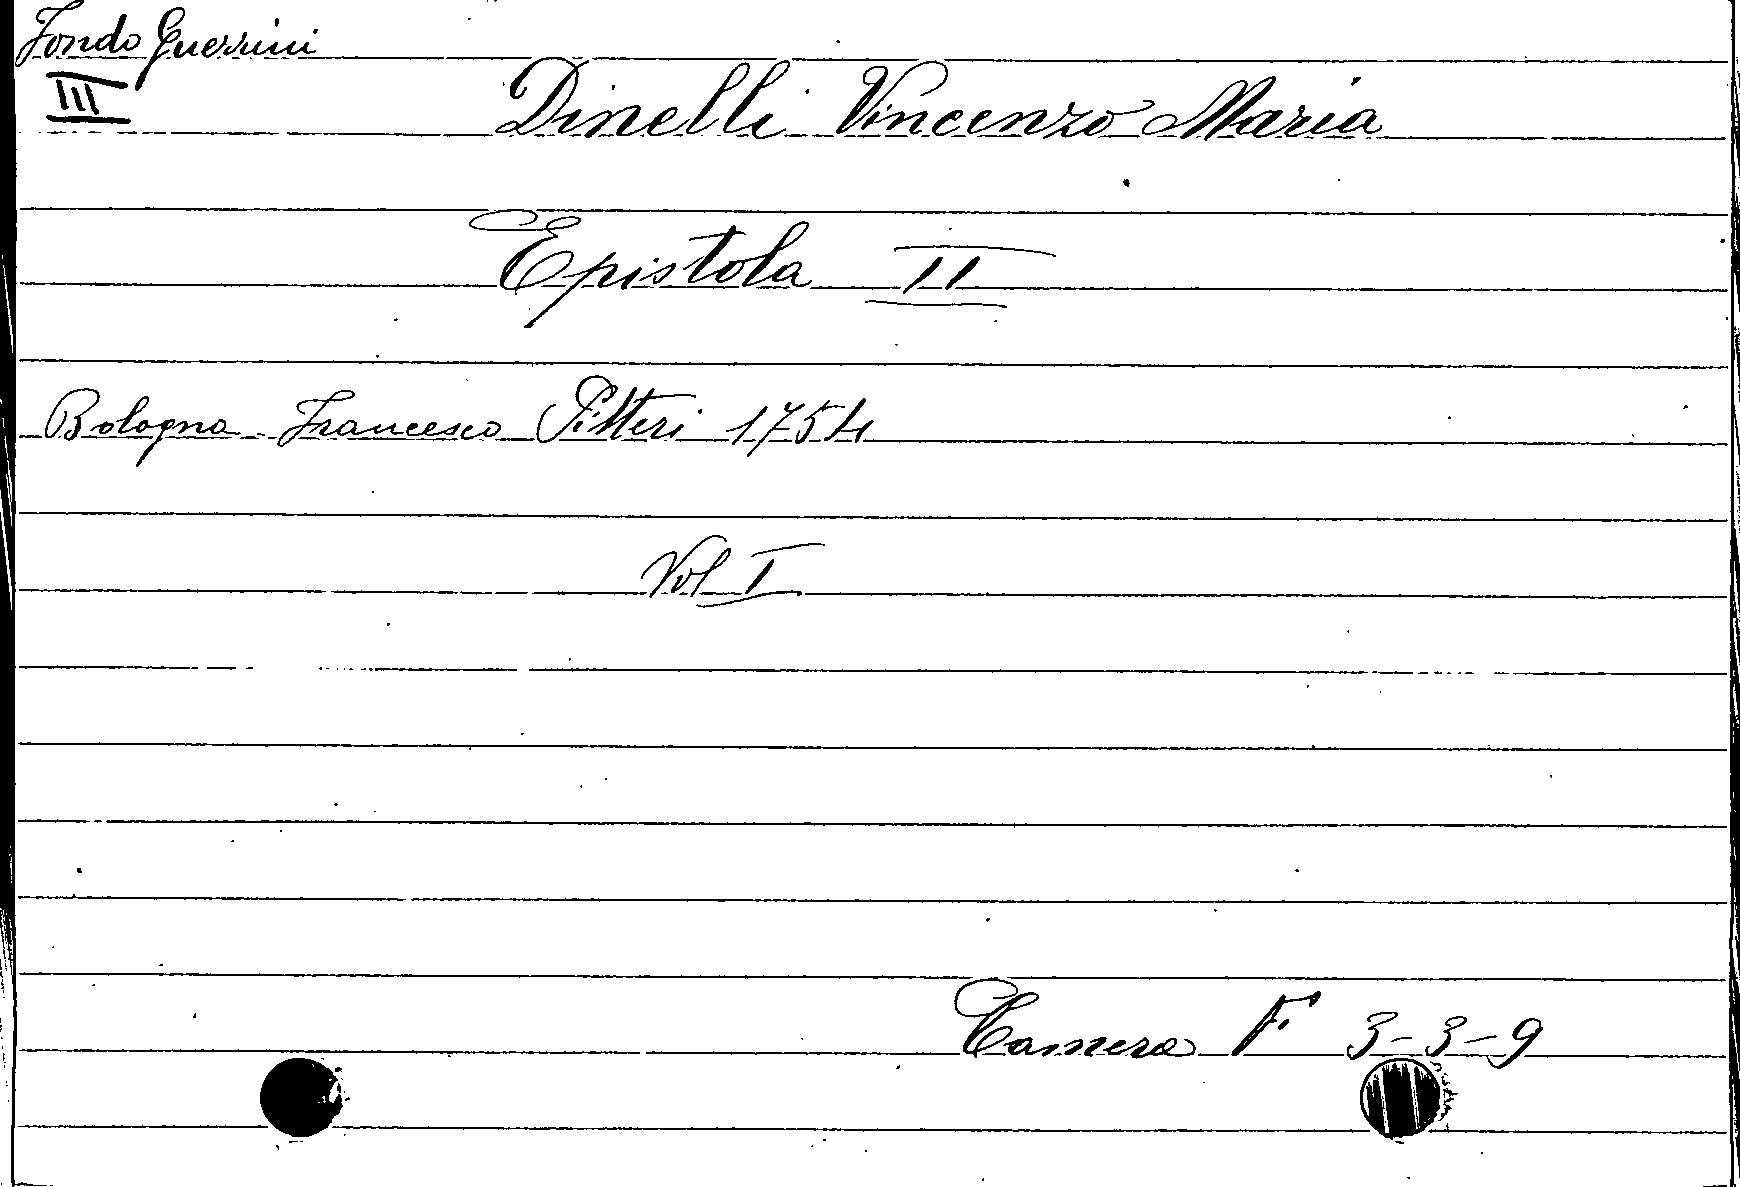 Fondo Guerrini
III
Dinelli Vincenzo Maria
Epistola II
Bologna - Francesco Pitteri 1754
Vol I
Camera F. 3-3-9